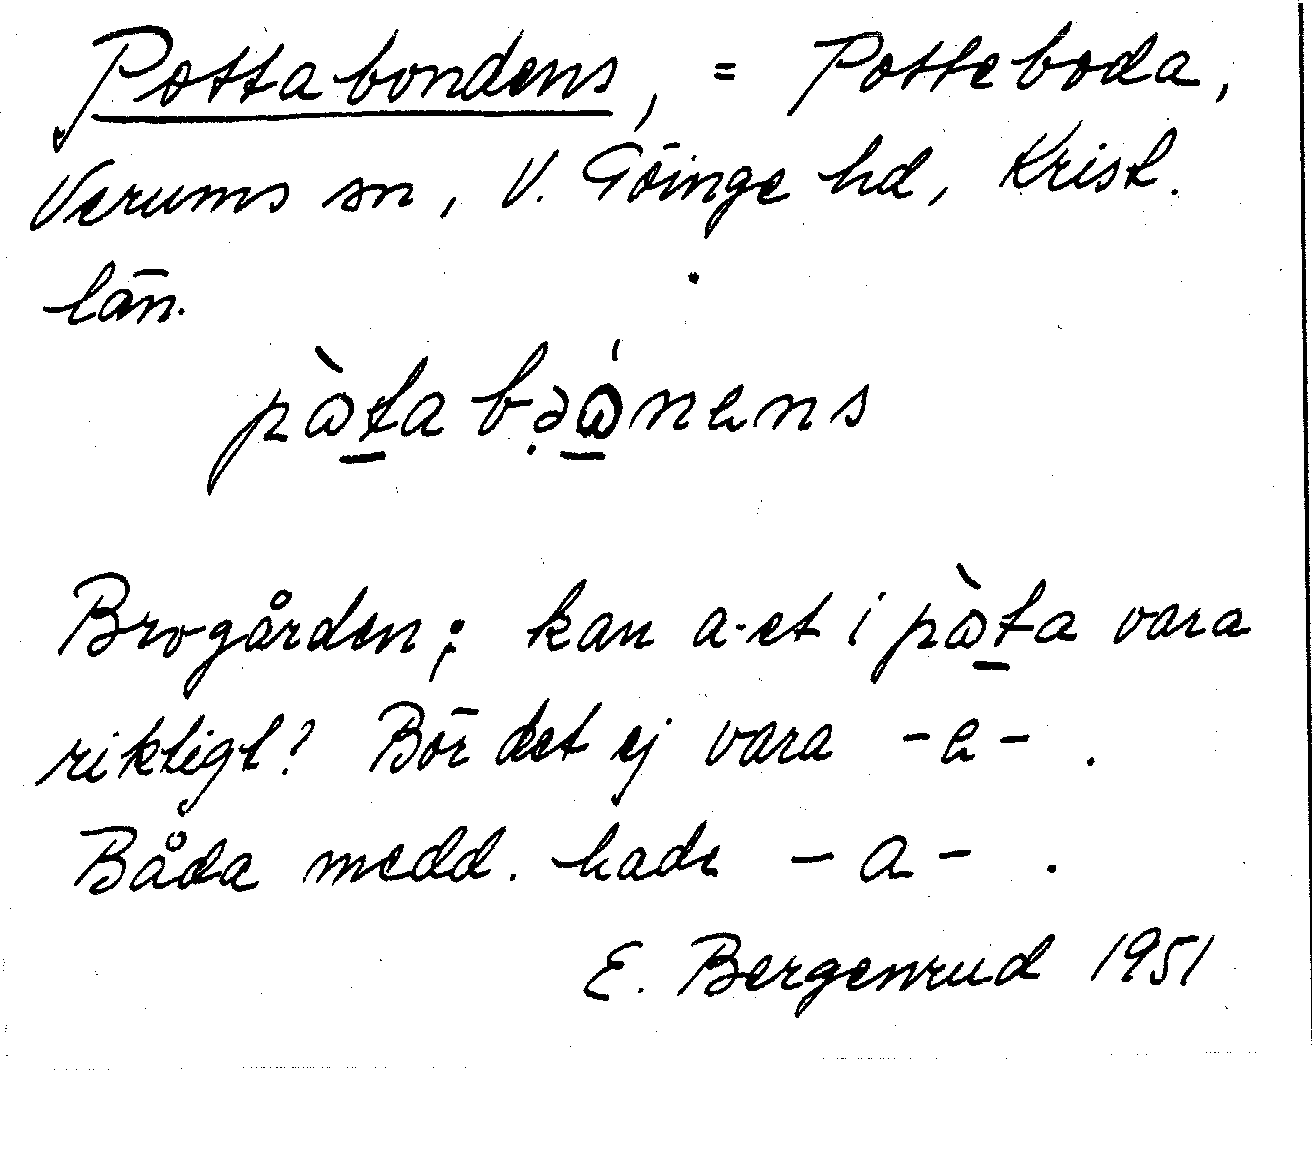 Pottabondens, = Potteboda,
Verums sn, V. Göinge hd, Krist.
län.
pὼta bəώnens
Brogården; kan a-et i pὼta vara
riktigt? Bör det ej vara -e- .
Båda medd. hade -a- .
E. Bergenrud 1951